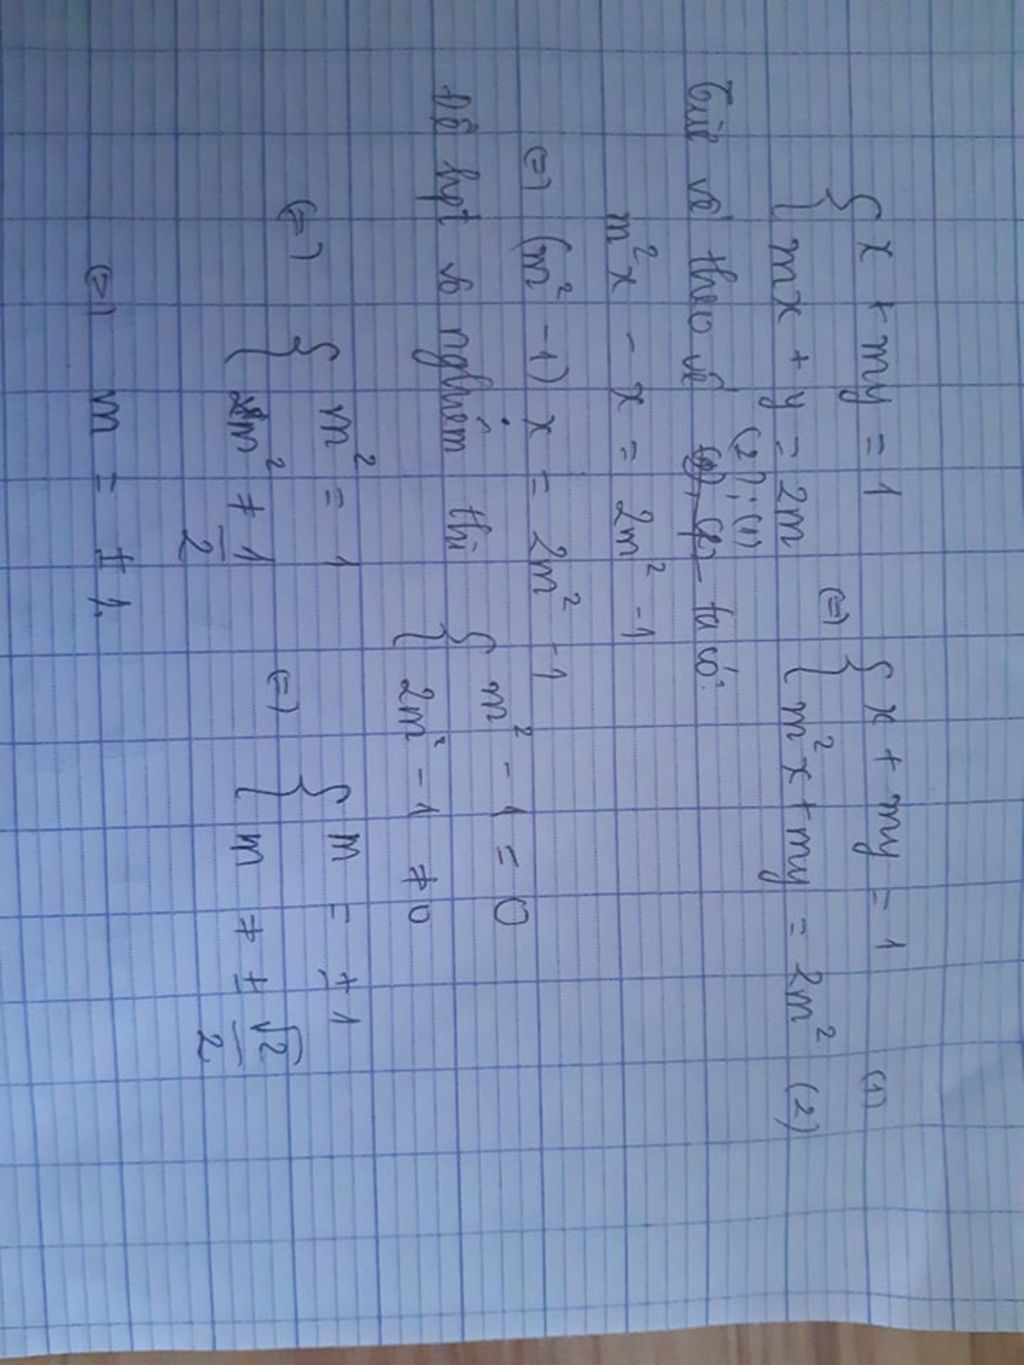 { x + my = 1 <=> { x + my = 1 (1)
{ mx + y = 2m { m²x + my = 2m² (2)
(2); (1)
Trừ vế theo vế ta có:
m²x - x = 2m² - 1
<=> (m² - 1) x = 2m² - 1
Để hpt vô nghiệm thì { m² - 1 = 0
{ 2m² - 1 ≠ 0
<=> { m² = 1 <=> { m = ± 1
{ m² ≠ 1/2 { m ≠ ± √2/2
<=> m = ± 1.